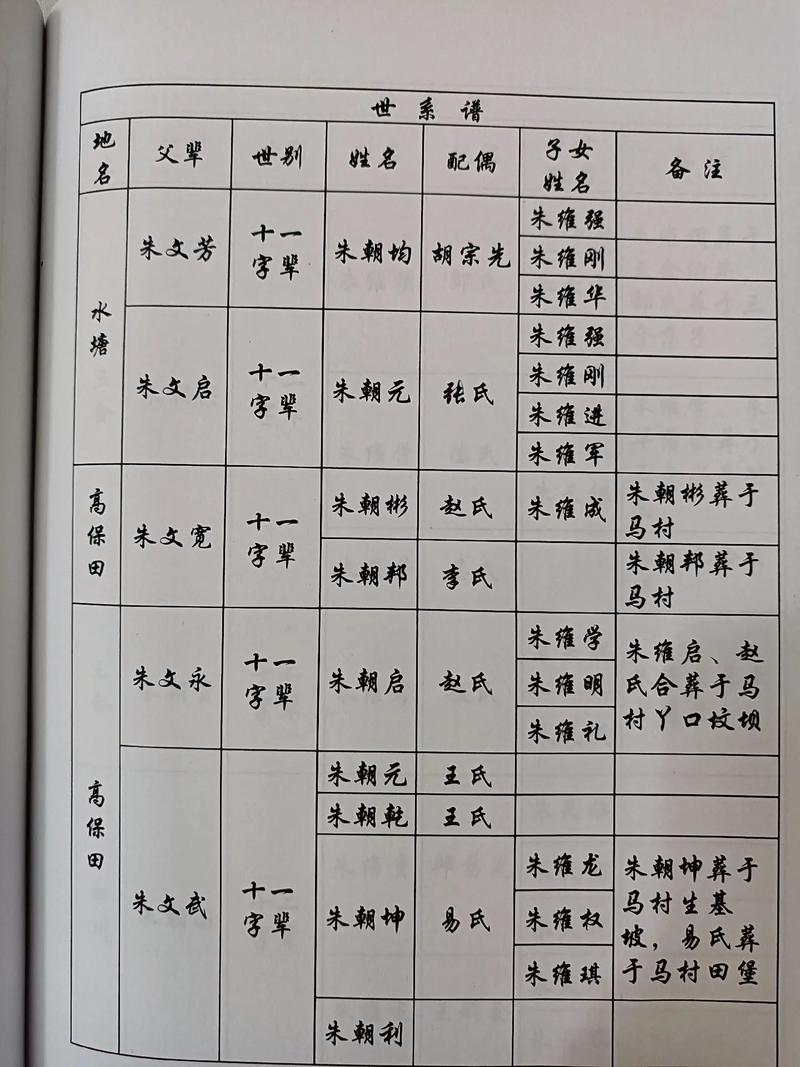 世系谱
地名 父辈 世别 姓名 配偶 子女姓名 备注
水塘 朱文芳 十一字辈 朱朝均 胡宗先 朱维强
朱维刚
朱维华
朱文启 十一字辈 朱朝元 张氏 朱维强
朱维刚
朱维进
朱维军
高保田 朱文宽 十一字辈 朱朝彬 赵氏 朱维成 朱朝彬葬于马村
朱朝邦 李氏 朱朝邦葬于马村
高保田 朱文永 十一字辈 朱朝启 赵氏 朱维学 朱维启、赵氏合葬于马村丫口坟坝
朱维明
朱维礼
朱文武 十一字辈 朱朝元 王氏
朱朝乾 王氏
朱朝坤 易氏 朱维龙 朱朝坤葬于马村生基坡，易氏葬于马村田堡
朱维权
朱维琪
朱朝利